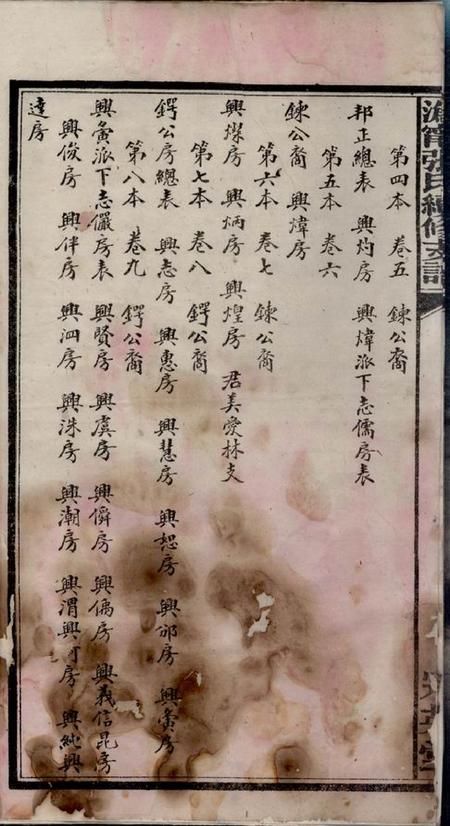 張氏續修支譜
第四本 卷五 鍊公裔
邦正總表 興灼房 興煒派下志儒房表
第五本 卷六
鍊公裔 興煒房
第六本 卷七 鍊公裔
興燦房 興炳房 興煌房 君美愛林支
第七本 卷八 鍔公裔
鍔公房總表 興志房 興惠房 興慧房 興恕房 興邠房 興賓房
第八本 卷九 鍔公裔
興賓派下志儼房表 興賢房 興虞房 興僎房 興偊房 興義信昆房
興俊房 興伴房 興泗房 興洙房 興潮房 興渭興河房 興純興
達房